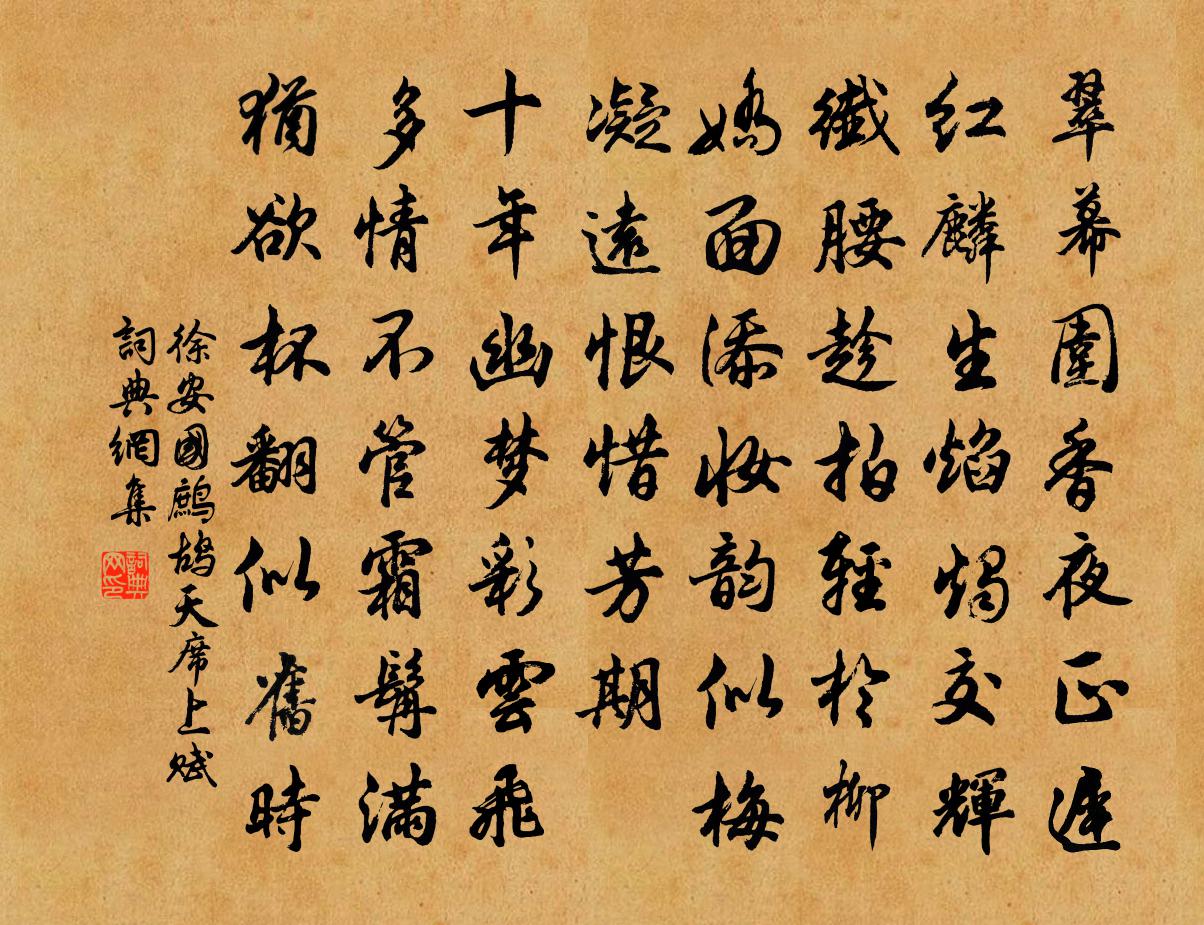 翠幕圍香夜正遲
红麟生焰燭交輝
纖腰趁拍輕於柳
嬌面添妝韵似梅
凝遠恨惜芳期
十年幽梦彩雲飛
多情不管霜髯满
猶欲杯翻似舊時
徐安國鷓鴣天席上賦
詞典網集
詞典網印